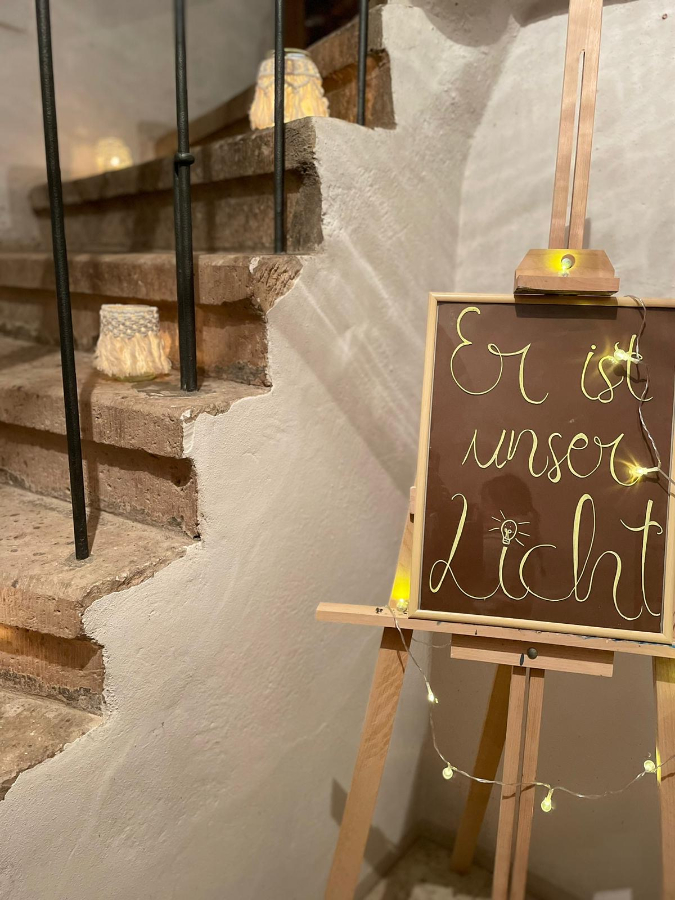 Er ist
unser
Licht